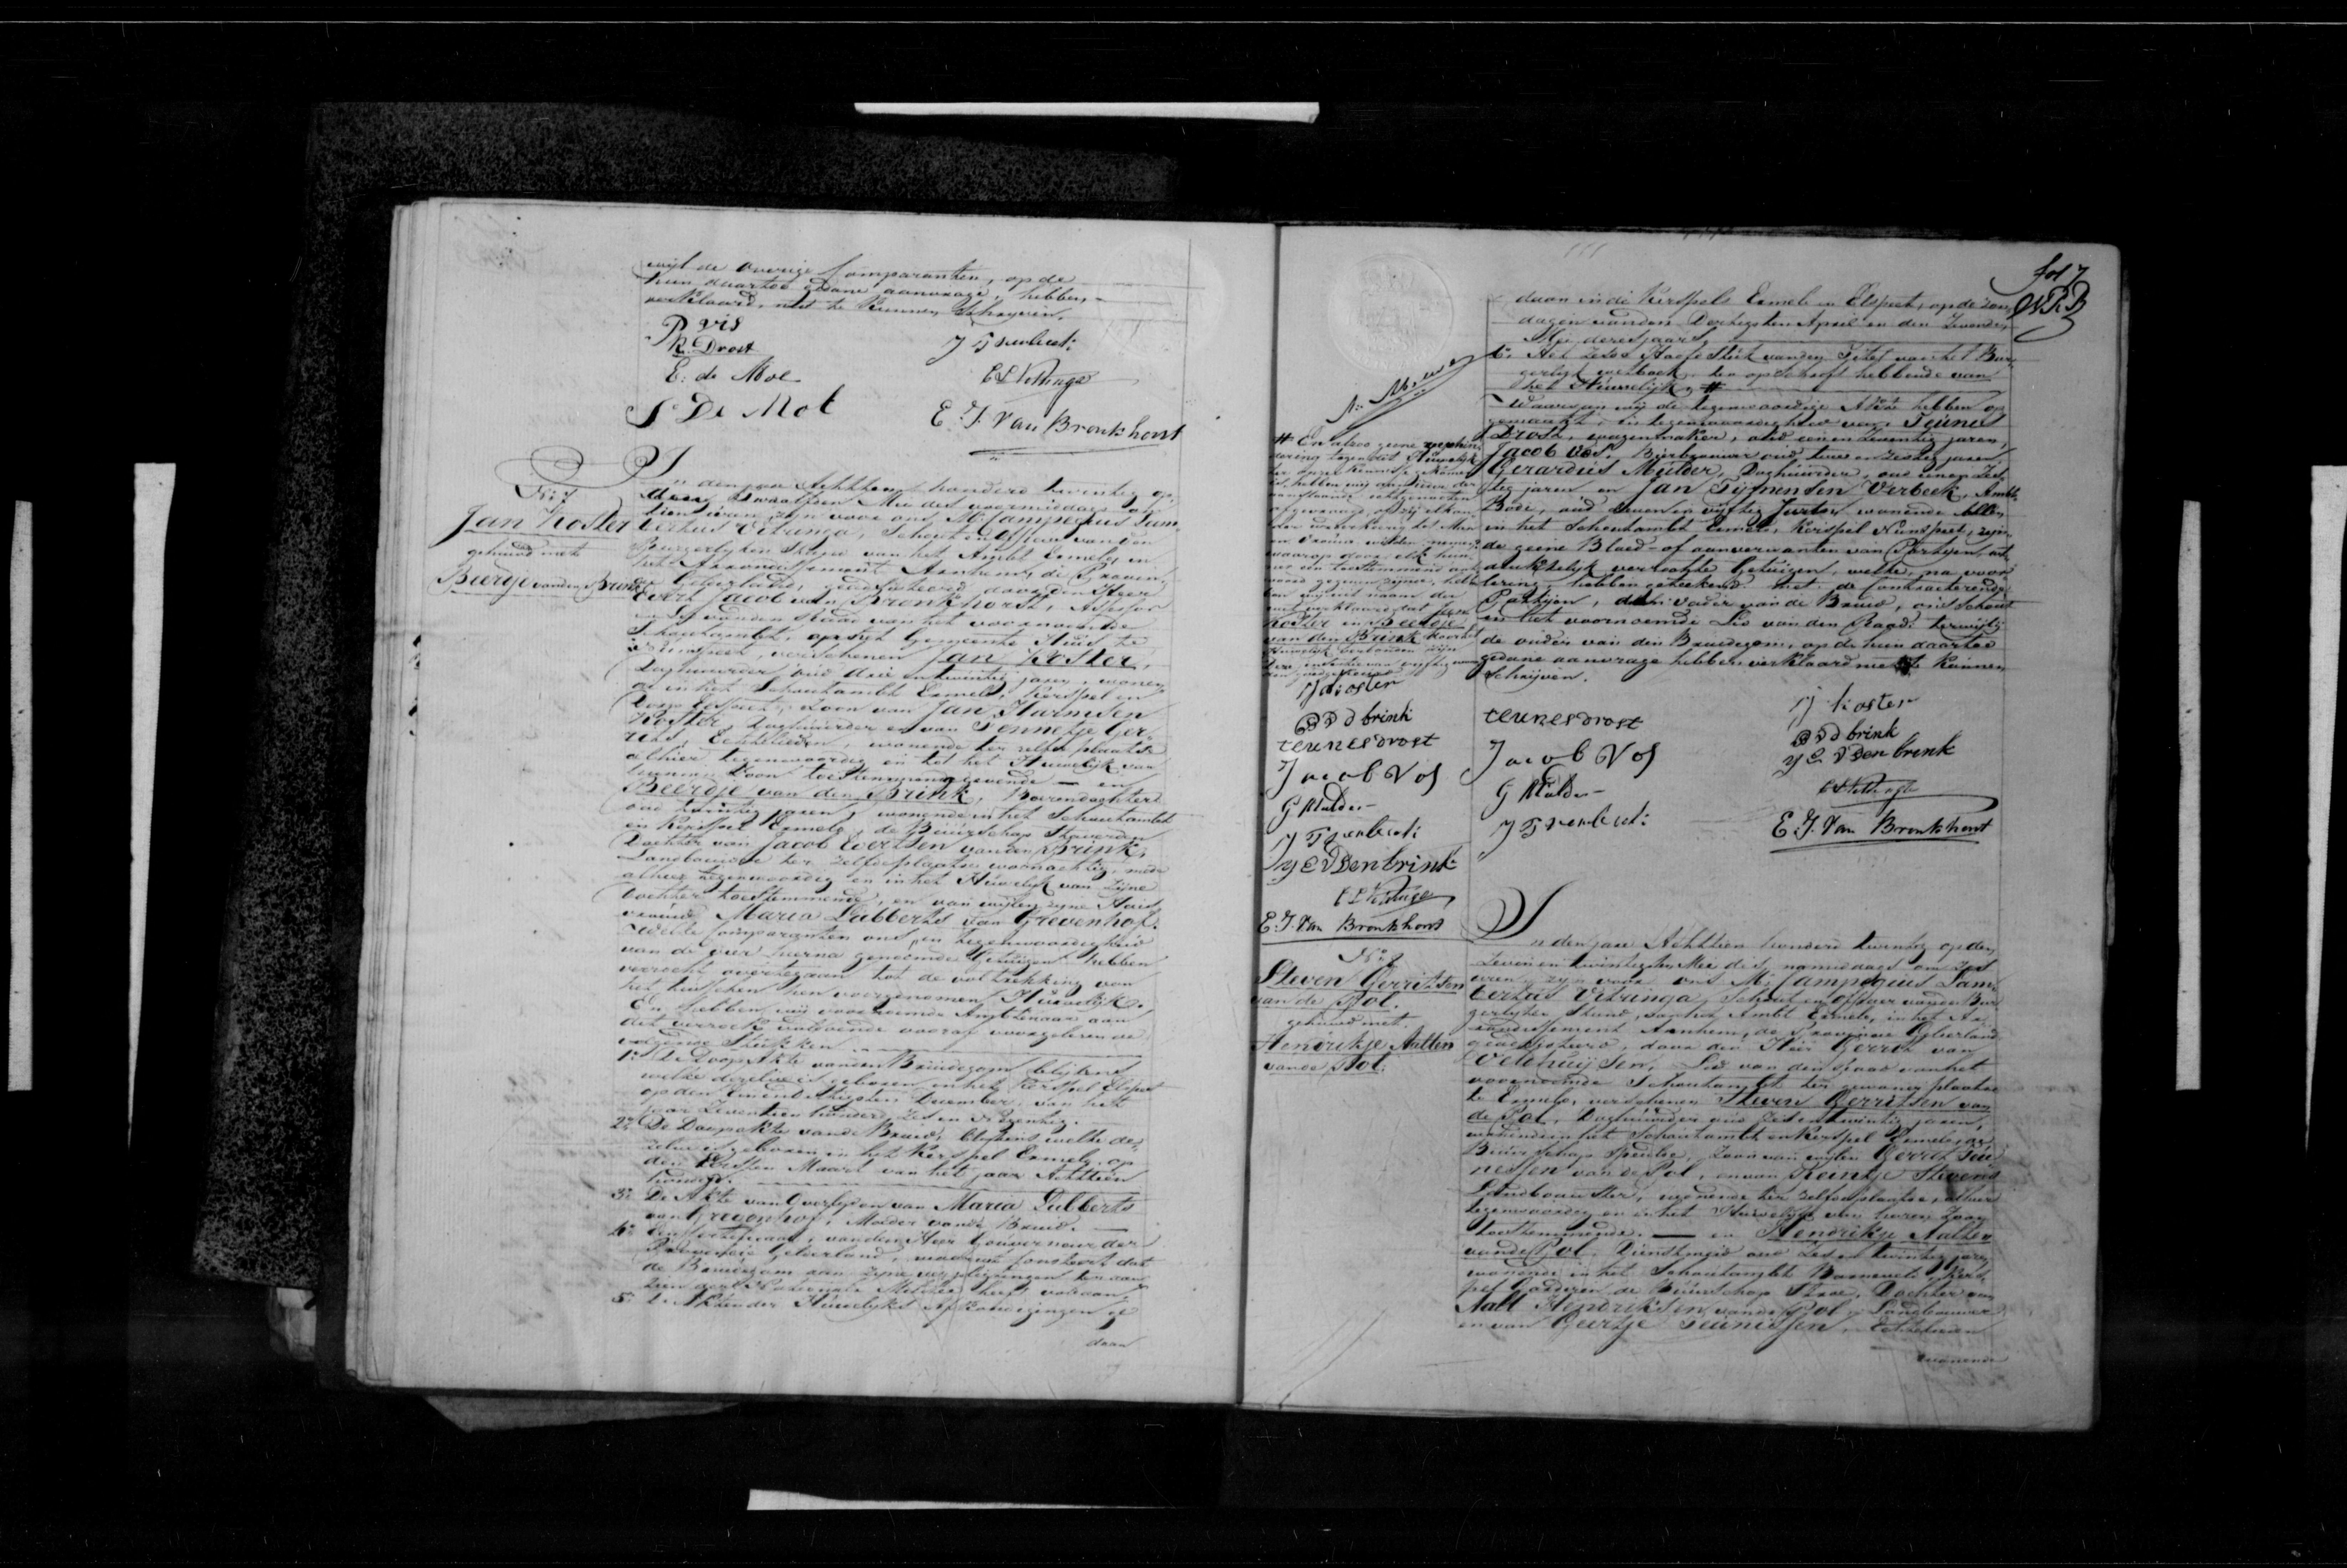 wijl de overige Comparanten, op de
hun daartoe gedane aanvrage, hebben
verklaard, niet te kunnen Schrijven.
P vis
R. Drost
E. de Mol
J: De Mol
E. J. Van Bronkhorst
No: 7
Jan Koster
gehuwd met
Beertje van den Brink
In den jare Achttien honderd twintig op
den twaalfden Mei des voormiddags om
tien uren, zijn voor ons Mr. Campegius Lam-
bertus Vitringa, Schout en Officier van den
Burgerlyken Stand van het Ambt Ermelo, in
het Arrondissement Arnhem, de Provin-
cie Gelderland, geadsisteerd door den Heer
Evert Jacob van Bronkhorst, Assessor
en Lid van den Raad van het voornoemde
Schoutambt, op het Gemeente Huis te
Nunspeet, verschenen Jan Koster,
Daghuurder, oud drie en twintig jaren, wonen-
de in het Schoutambt Ermelo, Kerspel en
Dorp Elspeet, Zoon van Jan Harmsen
Koster, Daghuurder en van Jennetje Ger-
rits, Echtelieden, wonende ter zelfde plaatse
alhier tegenwoordig en tot het Huwelijk van
hunnen Zoon toestemming gevende — en
Beertje van den Brink, Boerendochter
oud twintig jaren, wonende in het Schoutambt
en Kerspel Ermelo, de Buurschap Staverden
Dochter van Jacob Evertsen van den Brink,
Landbouwer ter zelfde plaatse woonachtig, mede
alhier tegenwoordig en in het Huwelijk van zijne
dochter toestemmende, en van wijlen zyne Huis-
vrouw, Maria Lubberts van Grevenhof.
Welke Comparanten ons, in tegenwoordigheid
van de vier hierna genoemde Getuigen hebben
verzocht overtegaan tot de voltrekking van
het tusschen hen voorgenomen Huwelijk.
En hebben wij voornoemde Ambtenaar aan
dit verzoek voldoende vooraf voorgelezen de
volgende Stukken
1o: De Doop Akte van den Bruidegom blijkens
welke dezelve is geboren in het Kerspel Elspeet
op den December van het
jaar Zeventien honderd Zes en Negentig.
2o: De Doopakte van de Bruid, blijkens welke de-
zelve is geboren in het Kerspel Ermelo, op
den Maart van het jaar Achttien
honderd.
3o: De Akte van Overlyden van Maria Lubberts
van Grevenhof, Moeder van de Bruid.
4o: Een Certificaat, van den Heer Gouverneur der
Provincie Gelderland, waaruit Consteert dat
de Bruidegom aan zijne verpligtingen ten aan-
zien der Nationale Militie heeft voldaan.
5o: De Akten der Huwelijks Afkondigingen ge-
daan
fol 7
daan in de Kerspels Ermelo en Elspeet, op de zon-
dagen van den Dertigsten April en den Zevenden
Mei dezes jaars,
6o: Het Zesde Hoofdstuk van den Titel van het Bur-
gerlijk wetboek, ten opschrift hebbende van
het Huwelijk, #
Waarvan wij de tegenwoordige Akte hebben op-
gemaakt, in tegenwoordigheid van Teunes
Drost, wagenmaker, oud een en Zeventig jaren,
Jacob Vos, oud twee en Zestig jaren
Gerardus Mulder, Daghuurder, oud een Zes-
tig jaren en Jan Tijmensen Verbeek, Ambts-
Bode, oud Zeven en vijftig Jaren wonende allen
in het Schoutambt Ermelo, Kerspel Nunspeet, zijn-
de geene Bloed- of aanverwanten van Partijen, uit-
drukkelijk verzochte Getuigen, welke, na voor-
lezing, hebben geteekend met de Contracteerende
Partijen, den vader van de Bruid, ons Schout
en het voornoemde Lid van den Raad: terwijl
de ouders van den Bruidegom, op de hun daartoe
gedane aanvrage hebben verklaard niet te kunnen
Schrijven.
# En alzoo geene verhin-
dering tegen dit Huwelijk
ter onzer Kennisse gekomen
is, hebben wij aan ieder der
aanstaande echtgenooten
afgevraagd, of zij elkan-
der tot Man
en Vrouw wilden nemen;
waarop door elk hun-
ner een toestemmend ant-
woord gegeven zijnde, heb-
ben wij uit naam der
wet verklaard dat Jan
Koster en Beertje
van den Brink door het
Huwelijk verbonden zijn
J koster
B v d brink
teunes drost
Jacob Vos
G Mulder
J T verbeek
J E v Den brink
E. J. Van Bronkhorst
teunes drost
Jacob Vos
G Mulder
J T verbeek
J koster
B v d brink
J E v Den brink
E. J. Van Bronkhorst
No: 8
Steven Gerritsen
van de Pol.
gehuwd met.
Hendrikje Aalten
van de Pol.
In den jare Achttien honderd twintig op den
Zeven en twintigsten Mei des namiddags om zes
uren, zijn voor ons Mr. Campegius Lam-
bertus Vitringa, Schout en Officier van den Bur-
gerlyken Stand, van het Ambt Ermelo, in het Ar-
rondissement Arnhem, de Provincie Gelderland
geadsisteerd, door den Heer Gerrit van
Velthuijsen, Lid van den Raad van het
voornoemde Schoutambt ter gewoner plaatse
te Ermelo, verschenen Steven Gerritsen van
de Pol, Daghuurder oud Zes en twintig jaren,
wonende in het Schoutambt en Kerspel Ermelo, de
Buurschap Speulde, Zoon van wijlen Gerrit Teu-
nessen van de Pol, en van Reintje Stevens
Landbouwster, wonende ter zelfde plaatse, alhier
tegenwoordig en in het Huwelijk van haren Zoon
toestemmende. — en Hendrikje Aalten
van de Pol, Dienstmeid oud Zes en twintig jaren
wonende in het Schoutambt Barneveld, Kers-
pel Garderen de Buurschap Stroe, Dochter van
Aalt Hendriksen van de Pol, Landbouwer
en van Geertje Teunissen, Echtelieden
wonende